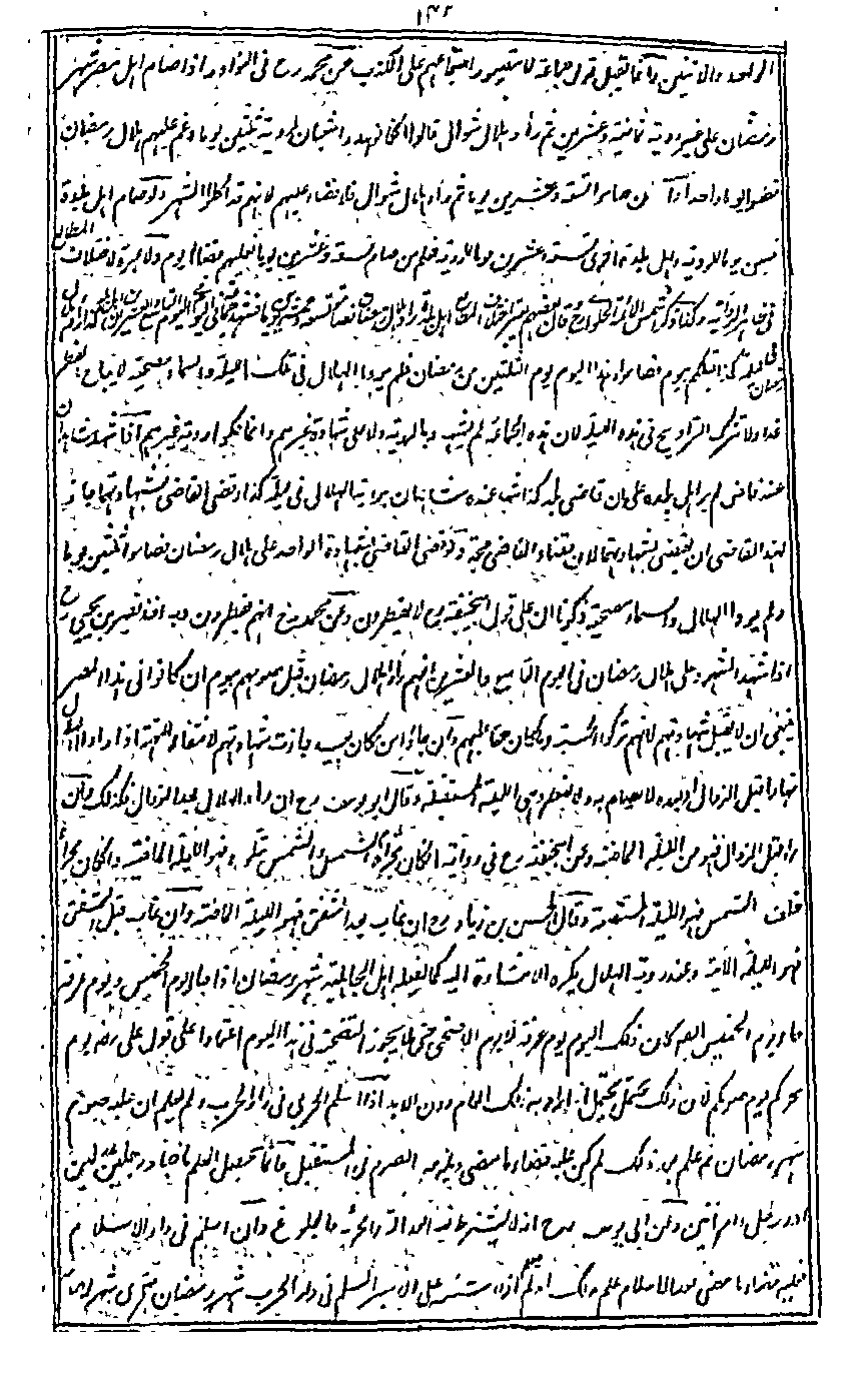 ١٤٢
الواحد والاثنين وانما يقبل قول جماعة لا يتصور اجتماعهم على الكذب عن محمد رح فى النوادر اذا صام اهل مصر شهر
رمضان على غير روية ثمانية وعشرين ثم رأوا هلال شوال قالوا ان كانوا عدوا شعبان لروية ثلثين يوما وغم عليهم هلال رمضان
قضوا يوما واحدا وان صاموا تسعة وعشرين يوما ثم رأوا هلال شوال فلا قضاء عليهم لانهم قد اكملوا الشهر ولو صام اهل بلدة
ثلثين يوما للروية واهل بلدة اخرى تسعة وعشرين يوما للروية فعلم من صام تسعة وعشرين يوما فعليهم قضاء يوم ولا عبرة لاختلاف المطالع
فى ظاهر الرواية وكذا ذكر شمس الائمة الحلوانى رح وقال بعضهم يعتبر اختلاف المطالع اهل بلدة رأوا هلال رمضان فصاموا تسعة وعشرين يوما فشهد جماعة فى اليوم التاسع والعشرين ان اهل بلد كذا رأوا هلال رمضان
فى ليلة كذا قبلكم بيوم فصاموا وهذا اليوم يوم الثلثين من رمضان فلم يروا الهلال فى تلك الليلة والسماء مصحية لا يباح الفطر
غدا ولا تترك التراويح فى هذه الليلة لان هذه الجماعة لم يشهدوا بالروية ولا على شهادة غيرهم وانما حكوا روية غيرهم اما شهد شاهدان
عند قاض لم ير اهل بلده على ان قاضى بلد كذا شهد عنده شاهدان بروية الهلال فى ليلة كذا وقضى القاضى بشهادتهما جاز
لهذا القاضى ان يقضى بشهادتهما لان قضاء القاضى حجة ولو قضى القاضى بشهادة الواحد على هلال رمضان فصاموا ثلثين يوما
ولم يروا الهلال والسماء مصحية ذكرنا ان على قول ابيحنيفة رح لا يفطرون وعن محمد رح انهم يفطرون وبه اخذ نصير بن يحيى رح
اذا شهد الشهود على هلال رمضان فى اليوم التاسع والعشرين انهم رأوا هلال رمضان قبل صومهم بيوم ان كانوا فى هذا المصر
ينبغى ان لا يقبل شهادتهم لانهم تركوا الحسبة وما كان حقا عليهم وان جاؤا من مكان بعيد جازت شهادتهم لانتفاء التهمة اذا رأوا الهلال
نهارا قبل الزوال او بعده لا يصام به ولا يفطر وهى الليلة المستقبلة وقال ابو يوسف رح ان راه الهلال بعد الزوال فكذلك وان
راه قبل الزوال فهو من الليلة الماضية وعن ابيحنيفة رح فى رواية ان كان مجراه امام الشمس والشمس تتلوه فهو لليلة الماضية وان كان مجراه
خلف الشمس فهو لليلة المستقبلة وقال الحسن بن زياد رح ان غاب بعد الشفق فهو لليلة الماضية وان غاب قبل الشفق
فهو لليلة الآتية وعند روية الهلال يكره الاشارة اليه كما يفعله اهل الجاهلية شهر رمضان اذا جاء يوم الخميس ويوم عرفة
جاء يوم الخميس ايضا كان ذلك اليوم يوم عرفة لا يوم الاضحى حتى لا يجوز التضحية فى هذا اليوم اعتمادا على قول على رضه يوم
نحركم يوم صومكم لان ذلك محتمل يحتمل انه اراد به ذلك العام دون الابد اذا اسلم الحربى فى دار الحرب ولم يعلم ان عليه صوم
شهر رمضان ثم علم بعد ذلك لم يكن عليه قضاء ما مضى ويلزمه الصوم فى المستقبل وانما يحصل العلم باخبار رجلين عدلين
او رجل وامراتين وعن ابى يوسف رح انه لا يشترط فيه العدالة والحرية والبلوغ وان اسلم فى دار الاسلام
فعليه قضاء ما مضى بعد الاسلام علم بذلك او لم يعلم اذا اشتبه على الاسير المسلم فى دار الحرب شهر رمضان فتحرى شهرا وصام